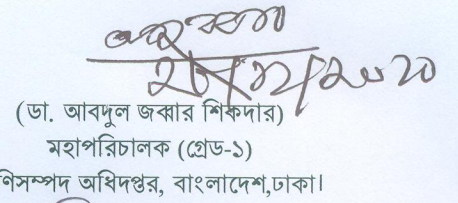 (ডা. আবদুল জব্বার শিকদার)
মহাপরিচালক (গ্রেড-১)
ণিসম্পদ অধিদপ্তর, বাংলাদেশ,ঢাকা।